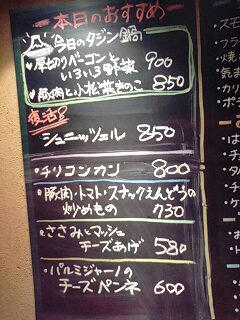 本日のおすすめ
今日のタジン鍋
・厚切りベーコンと
いろいろ野菜 900
・豚肉と小松菜きのこ 850
復活!
シュニッツェル 850
・チリコンカン 800
・豚肉・トマト・スナックえんどうの
炒めもの 730
・ささみとマッシュ
チーズあげ 580
・パルミジャーノの
チーズペンネ 600